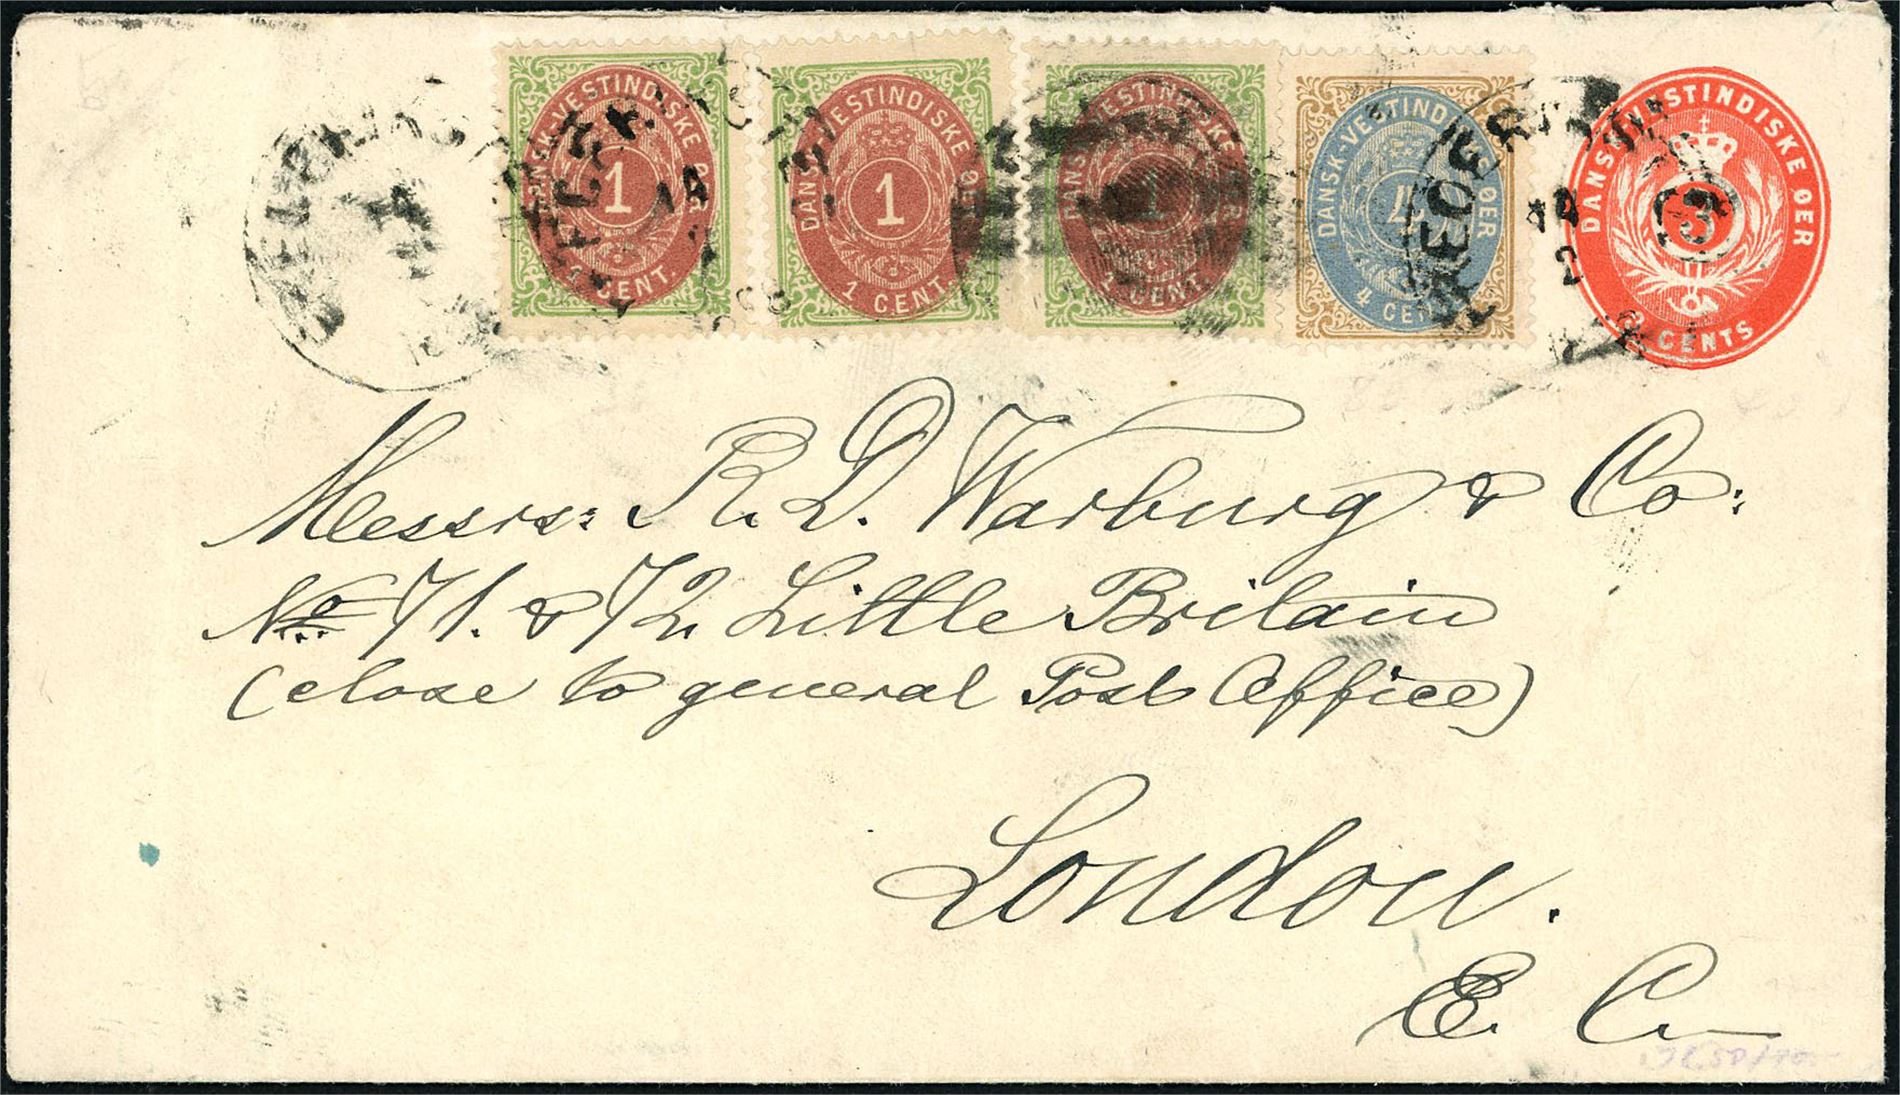 DANSK-VESTINDISKE ØER
1
1 CENT.
DANSK-VESTINDISKE ØER
1
1 CENT.
DANSK-VESTINDISKE ØER
1
1 CENT.
DANSK-VESTINDISKE ØER
4
4 CENTS
DANSK VESTINDISKE ØER
3
3 CENTS
Messrs: R. D. Warburg & Co:
No 71. & 72 Little Britain
(close to general Post Office)
London.
E. C.